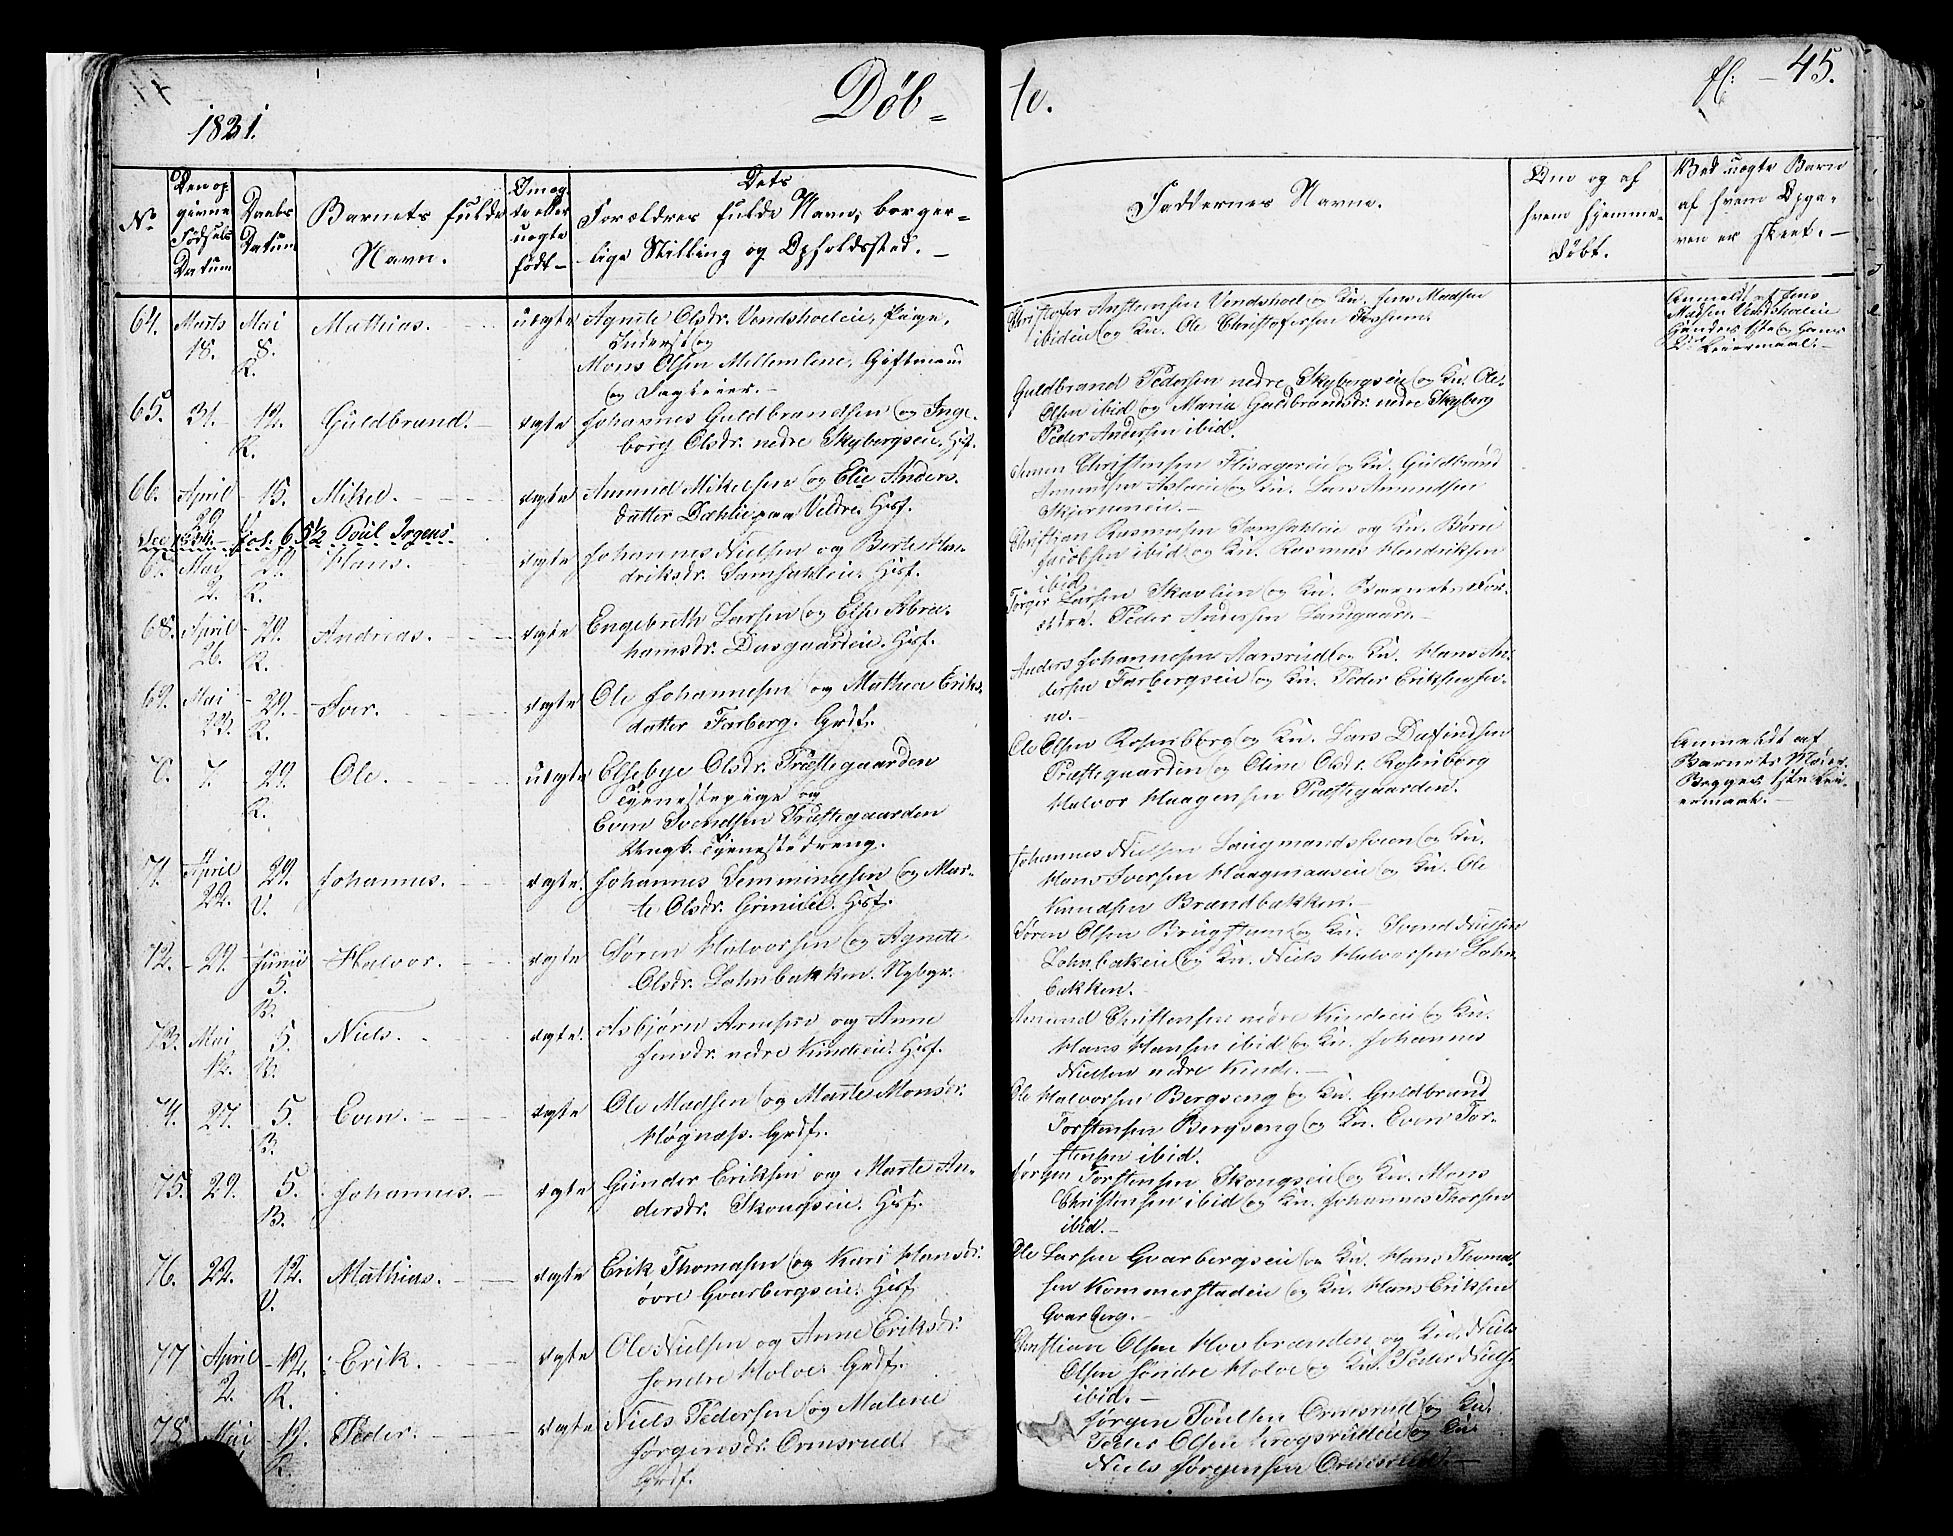 1831.
Døb=
te.
fl: 45.
No
Den op
givne
Fødsels
Datum
Daabs
Datum
Barnets fulde
Navn.
uægte
født
Dets
Forældres fulde Navn, borger=
lige Stilling og Opholdssted.
Faddernes Navne.
Om og af
hvem hjemme=
døbt.
Ved uægte Børn
af hvem Opga=
ven er skeet.
64. Marts 18. Mai 8. R. Mathias. uægte
Agnete Olsdr. Vendshoeleie, Pige,
Inderst og
Mons Olsen Mellemlene, Giftmand
Christofer Anstensen Vendshoel og Kn. Jens Madsen
ibideie og Kn. Ole Christofersen Fossum.
Anmeldt af Jens
Madsen Vendshoeleie
Hendes 1ste og Hans
2det Leiermaal.
65. 31. 12. R. Guldbrand. ægte
Johannes Guldbrandsen og Inge=
borg Olsdr. nedre Skybergseie. Hsf.
Guldbrand Pedersen nedre Skybergseie og Kn. Ole
Olsen ibid og Maria Guldbrandsdr. nedre Skyberg
Peder Andersen ibid.
66. April 15. Mikel. ægte
Amund Mikelsen og Elie Anders=
datter Dæhlie paa Veldre. Hsf.
Christensen og Kn. Guldbrand
Amundsen og Kn. Lars Amundsen
See 1834. fol. 65½ Poul Irgens.
67. Mai 2. 29. R. Hans. ægte
Johannes Nielsen og Berte Hen=
driksdr. Samsahleie. Hsf.
Christian Rasmusen Samsahleie og Kn. Børre
Jacobsen ibid og Kn. Rasmus Hendriksen
ibid.
68. April 26. 29. R. Andreas. ægte
Engebreth Larsen og Else Abra=
hamsdr. Dusgaardeie. Hsf.
Larsen og Kn. Barnets For=
ældre. Peder Andersen
69. Mai 23. 29. R. Iver. ægte
Ole Johannesen og Mathea Eriks=
datter Farberg. Grdf.
Anders Johannesen Aarsrud og Kn. Hans An=
dersen Farbergseie og Kn. Peder Eriksen
70. 7. 29. R. Ole. uægte
Elsebye Olsdr. Præstegaarden
Tjenestepige og
Even Svendsen Præstegaarden
Ungk. Tjenestedreng.
Ole Olsen Rosenborg og Kn. Lars Dafindsen
Præstegaarden og Oline Olsdr. Rosenborg
Halvor Haagensen Præstegaarden.
Anmeldt af
Barnets Moder.
Begges 1ste Lei=
ermaal.
71. April 22. 29. V. Johannes. ægte.
Johannes Lemmingsen og Mar=
te Olsdr. Hsf.
Johannes Nielsen og Kn.
Hans Iversen og Kn. Ole
Knudsen Brandbakken.
72. 29. Junii 5. B. Halvor. ægte
Søren Halvorsen og Agnete
Olsdr. Lohnbakken. Nybgr.
Søren Olsen og Kn. Svend Nielsen
Lohnbakeie og Kn. Niels Halvorsen Lohn=
bakken.
73. Mai 12. 5. B. Niels. ægte.
Asbjørn Arnesen og Anne
Jensdr. nedre Kindeie. Hsf.
Amund Christensen nedre Kindeie og Kn.
Hans Hansen ibid og Kn. Johannes
Nielsen nedre Kinde.
74. 27. 5. B. Even. ægte
Ole Madsen og Marte Monsdr.
Høgnæss. Grdf.
Ole Halvorsen Bergseng og Kn. Guldbrand
Torstensen Bergseng og Kn. Even Tor=
stensen ibid.
75. 29. 5. B. Johannes. ægte
Gunder Eriksen og Marte An=
dersdr. Skongseie. Hsf.
Jørgen Torstensen Skongseie og Kn. Mons
Christensen ibid og Kn. Johannes Thorsen
ibid.
76. 22. 12. V. Mathias. ægte
Erik Thomasen og Kari Hansdr.
øvre Gvarbergseie. Hsf
Ole Larsen Gvarbergseie og Kn. Hans Thoma=
sen Kommerstadeie og Kn. Hans Eriksen
Gvarberg.
77 April 2. 12. R. Erik. ægte
Ole Nielsen og Anne Eriksdr.
søndre Holve. Grdf.
Christian Olsen Hovbranden og Kn. Niels
Olsen søndre Holve og Kn. Peder Niels.
ibid.
78. Mai 12. R. Peder. ægte
Niels Pedersen og Malene
Jørgensdr. Ormsrud.
Grdf.
Jørgen Poulsen Ormsrud og Kn.
Peder Olsen og Kn.
Niels Jørgensen Ormsrud.